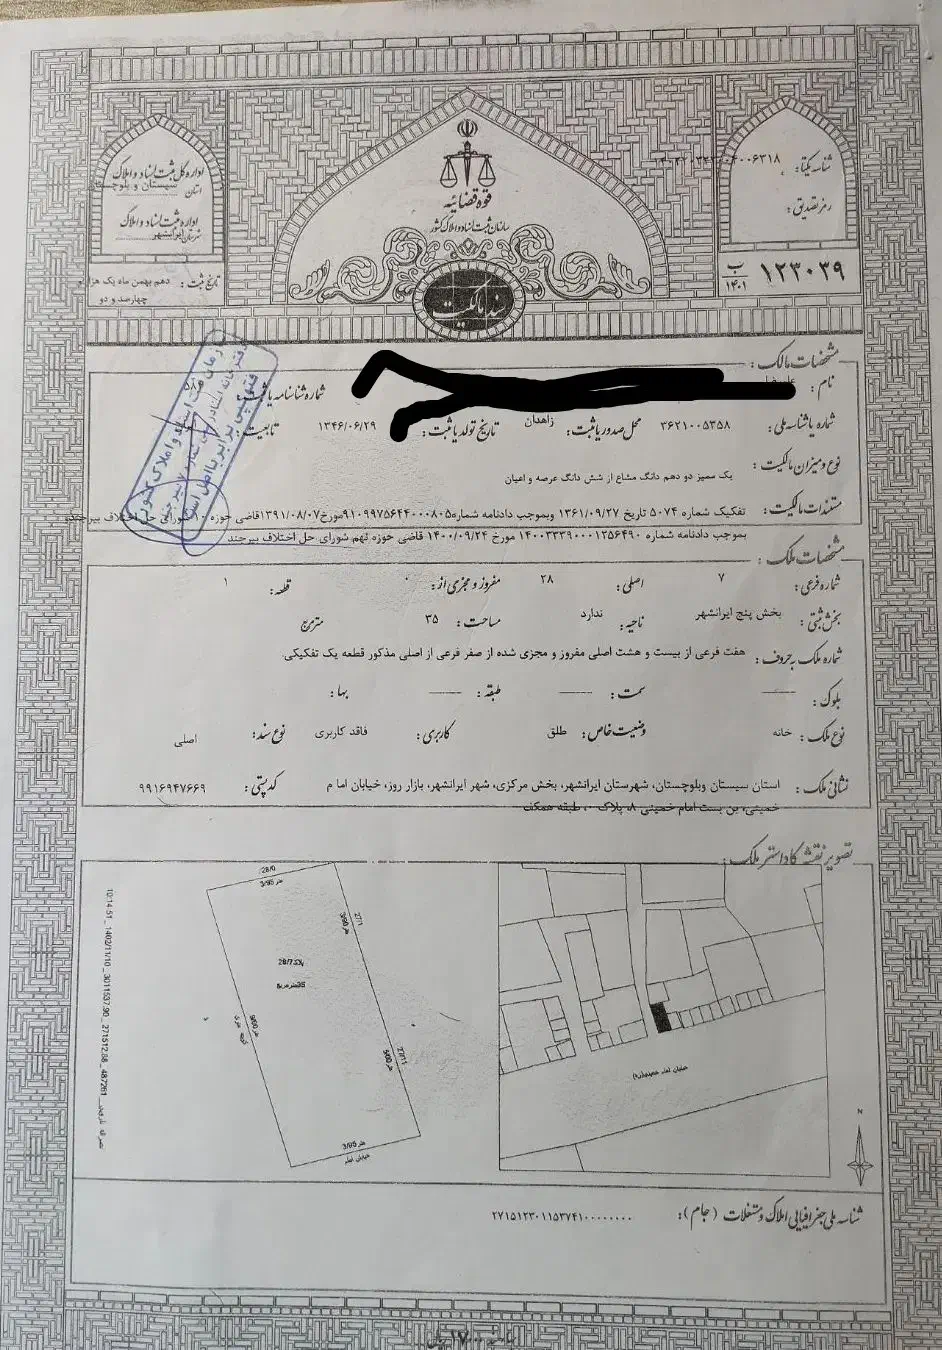 قوه قضائیه
سازمان ثبت اسناد و املاک کشور
سند مالکیت
اداره کل ثبت اسناد و املاک
استان سیستان و بلوچستان
اداره ثبت اسناد و املاک
شهرستان ایرانشهر
تاریخ ثبت : دهم بهمن ماه یک هزار و
چهارصد و دو
شناسه یکتا:
رمز تصدیق:
۱۲۳۰۳۹ ب ۱۴۰۱
مشخصات مالک :
نام :
شماره شناسنامه یا ثبت:
شماره یا شناسه ملی: ۳۶۲۱۰۰۵۳۵۸ محل صدور یا ثبت: زاهدان تاریخ تولد یا ثبت: ۱۳۴۶/۰۶/۲۹ تابعیت:
نوع و میزان مالکیت : یک ممیز دو دهم دانگ مشاع از شش دانگ عرصه و اعیان
مستندات مالکیت : تفکیک شماره ۵۰۷۴ تاریخ ۱۳۶۱/۰۹/۲۷ وبموجب دادنامه شماره۹۱۰۹۹۷۵۶۴۴۰۰۰۸۰۵مورخ۱۳۹۱/۰۸/۰۷قاضی حوزه ۱۰شورای حل اختلاف بیرجندو
بموجب دادنامه شماره ۱۴۰۰۳۳۳۹۰۰۰۱۲۵۶۴۹۰ مورخ ۱۴۰۰/۰۹/۲۴ قاضی حوزه نهم شورای حل اختلاف بیرجند
مشخصات ملک :
شماره فرعی: ۷ اصلی: ۲۸ مفروز و مجزی از: ۰ قطعه: ۱
بخش ثبتی: بخش پنج ایرانشهر ناحیه: ندارد مساحت: ۳۵ مترمربع
شماره ملک به حروف: هفت فرعی از بیست و هشت اصلی مفروز و مجزی شده از صفر فرعی از اصلی مذکور قطعه یک تفکیکی.
بلوک: سمت: طبقه: بها:
نوع ملک: خانه وضعیت خاص: طلق کاربری: فاقد کاربری نوع سند: اصلی
نشانی ملک: استان سیستان وبلوچستان، شهرستان ایرانشهر، بخش مرکزی، شهر ایرانشهر، بازار روز، خیابان امام کدپستی: ۹۹۱۶۹۴۷۶۶۹
خمینی، بن بست امام خمینی ۸، پلاک ۰، طبقه همکف
تصویر نقشه کاداستر ملک :
28/0
3/95 متر
27/1
پلاک28/7
35مترمربع
27/11
3/95 متر
خیابان امام
10:14:51 _ 1402/11/10 _ 3011537.90 _ 271512.88 _ 487261
خیابان امام خمینی(ره)
N
شناسه ملی جغرافیایی املاک و مستغلات (جام): ۲۷۱۵۱۲۳۰۱۱۵۳۷۴۱۰۰۰۰۰۰۰۰۰